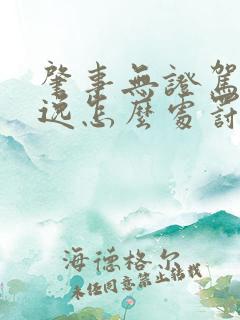 肇事無證駕
逃怎麼處罰
海德格尔
未经同意禁止转载